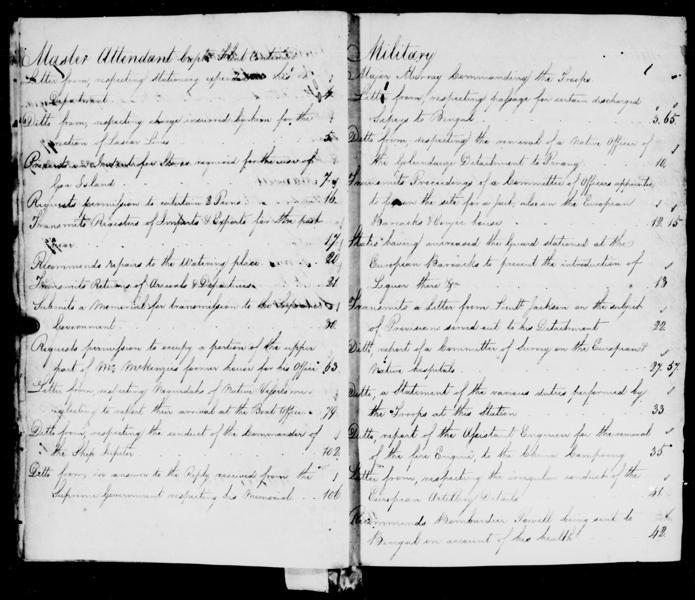 Master Attendant Capt
Letter from, respecting stationery
Department 4
Ditto from, respecting charge incurred by him for the
erection of Lascar Lines 5
for Stores required for the use of
Goa Island 7
Requests permission to entertain 3 Peons 16
Transmits Registers of Imports & Exports for the past
year 17
Recommends repairs to the Watering place 20
Transmits Returns of Arrivals & Departures 21
Submits a Memorial for transmission to the
Government 31
Requests permission to occupy a portion of the upper
part of Mr McKenzies former house for his Office 63
Letter from, respecting Nacodahs of Native Vessels
neglecting to report their arrival at the Boat Office 79
Ditto from, respecting the conduct of the Commander of
the Ship Jupiter 102
Ditto from, in answer to the Reply received from the
Supreme Government respecting his Memorial 106
Military
Major Murray Commanding the Troops 1
Letter from, respecting passage for certain discharged
Sepoys to Bengal 3. 65
Ditto from, respecting the removal of a Native Officer of
the Golundauze Detachment to Penang 10
Transmits Proceedings of a Committee of Officers appointed
to fix on the site for a fort, also on the European
Barracks & Congee house 12. 15
States having increased the Guard stationed at the
European Barracks to prevent the introduction of
Liquor there &c 13
Transmits a letter from Lieutt Jackson on the subject
of Provisions served out to his Detachment 22
Ditto, report of a Committee of Survey on the European &
Native hospitals 27. 57
Ditto, a Statement of the various duties performed by
the Troops at this Station 33
Ditto, report of the Assistant Engineer for the removal
of the fire Engine, to the China Campong 35
Letter from, respecting the irregular conduct of the
European Artillery Details 41
Recommends Bombardier Powell being sent to
Bengal on account of his health 42